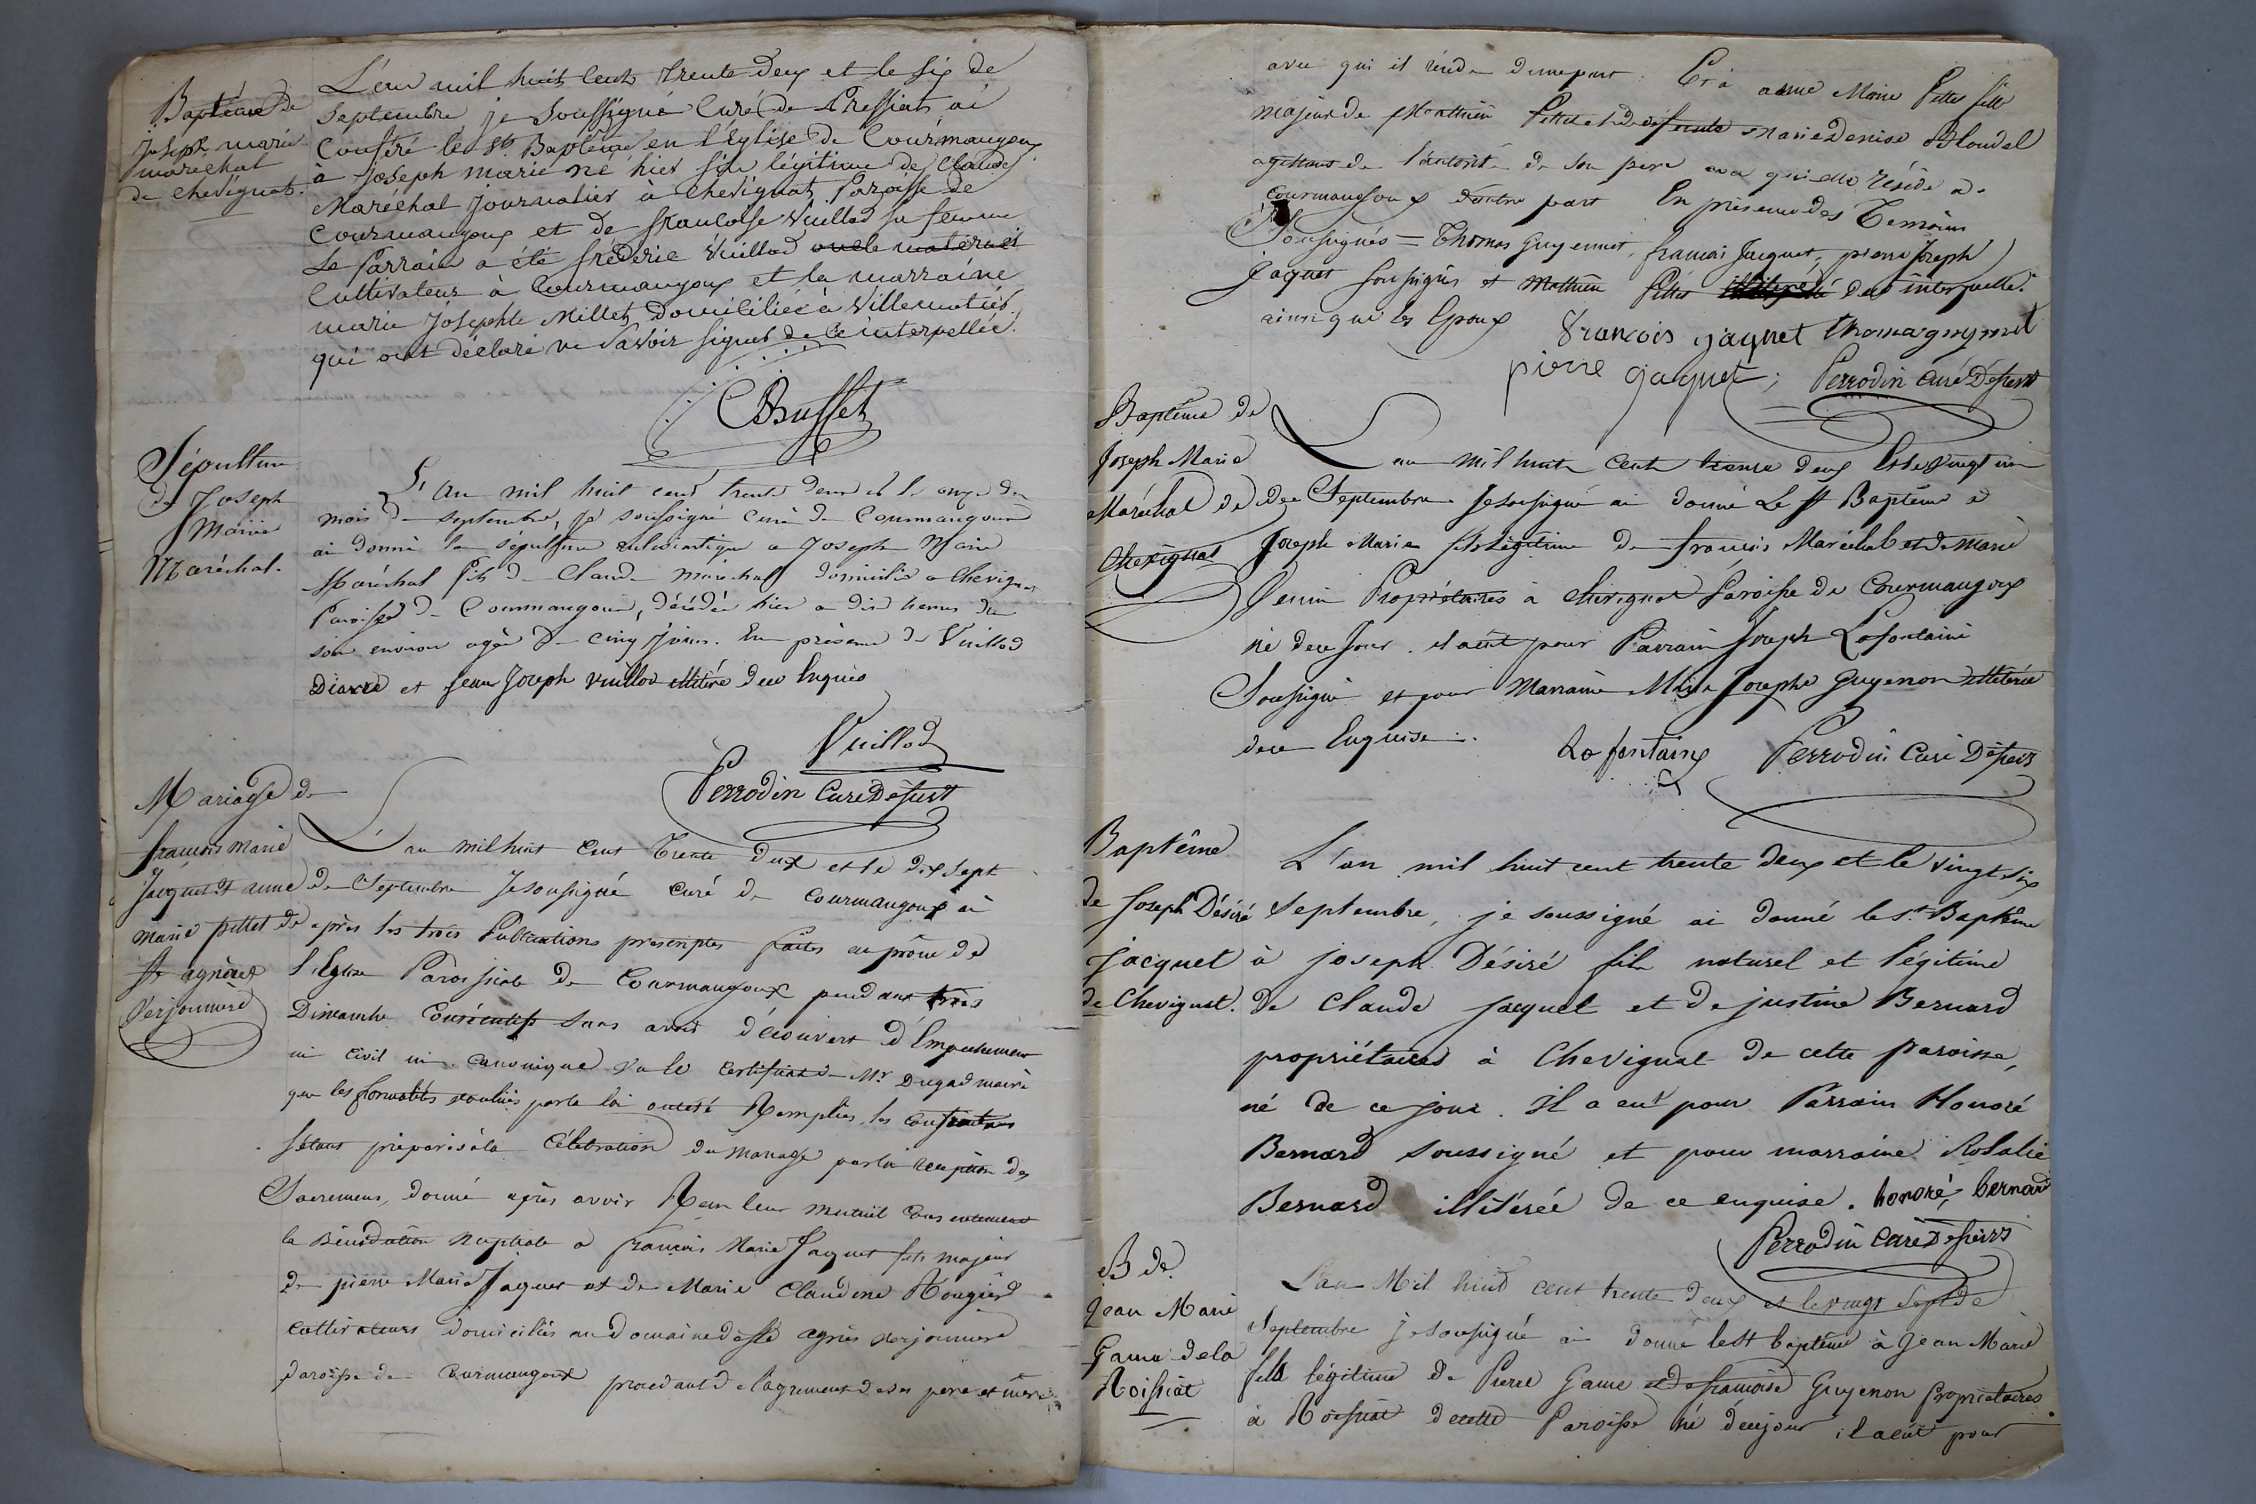 Baptême de
Joseph marie
maréchal
de chevignat.
L'an mil huit cent trente deux et le six de
septembre je soussigné Curé de Pressiat ai
conféré le st Baptême en l'Eglise de Courmangoux
à Joseph marie né hier fils légitime de Claude
Maréchal journalier à chevignat paroisse de
Courmangoux et de françoise Vuillod sa femme
Le Parrain a été fréderic Vuillod oncle maternel
Cultivateur à Courmangoux et la marraine
marie Josephte Millet domiciliée à Villemotier
qui ont déclaré ne savoir signer de ce interpellés.
CBuffet
Sépulture
de Joseph
Marie
Maréchal.
L'An mil huit cent trente deux et le onze du
mois de septembre, je soussigné curé de Courmangoux
ai donné la sépulture eclesiastique a Joseph Marie
Maréchal fils de Claude maréchal domicilié a Chevignat
Paroisse de Courmangoux, décédé hier a dix heures du
soir environ agé de cinq jours. En présence de Vuillod
Pierre et jean Joseph vuillod illitéré de ce Enquis
Vuillod
Perrodin Curé Desserv
Mariage de
françois marie
Jaquet et anne
marie pittet de
St agnieux
Verjonnière
L'an mil huit cent Trente deux et le dix sept
de Septembre Je soussigné curé de courmangoux ai
après les trois Publications prescriptes faites au prône de
l'Eglise Paroissiale de Courmangoux pendant trois
Dimanche Consécutifs sans avoir découvert d'Empechement
ni civil ni canonique vu le certificat de Mr Dugad maire
que les formalités voulues par la loi ont été Remplies, les contractans
s'étant préparés à la Célébration du mariage par la reception des
Sacremens, donné après avoir Reçu leur mutuel consentement
la Bénédiction nuptiale a François Marie Jaquet fils majeur
de pierre Marie Jaquet et de Marie Claudine Rougier
cultivateurs domiciliés au domaine de st agnier verjonniere
paroisse de Courmangoux procedant de l'agrement de ses pere et mère
avec qui il réside d'une part. Et à anne Marie Pittet fille
majeur de Mathieu Pittet et de défunte Marie Denise Blondel
agissant de l'autorité de son pere avec qui elle réside a
Courmangoux d'autre part En présence des Temoins
Soussignés = Thomas Guyennet, françois Jacquet, pierre Joseph
jaquet soussignés et Mathieu Pittet illitéré de ce interpellé
ainsi que les Epoux
François jaquet thomas guyennet
pierre jaquet; Perrodin Curé Desserv
Baptême de
Joseph Marie
Maréchal de
Chevignat
L'an mil huit cent trente deux Et le vingt un
de Septembre Je soussigné ai donné Le St Baptême à
Joseph Marie fils Légitime de françois Maréchal et de Marie
Perrin Propriétaires à Chevignat paroisse de Courmangoux
né de ce Jour. il a eut pour Parrain Joseph Lafontaine
Soussigné et pour Marraine Marie Josephe Guyenon illitérée
de ce Enquise.
Lafontaine Perrodin Curé Desserv
Baptême
de Joseph Désiré
jacquet
de Chevignat.
L'an mil huit cent trente deux et le vingt six
septembre, je soussigné ai donné le st Baptême
à joseph Désiré fils naturel et légitime
de Claude jacquet et de justine Bernard
propriétaires à Chevignat de cette paroisse,
né de ce jour. Il a eut pour Parrain Honoré
Bernard soussigné et pour marraine Rosalie
Bernard illitérée de ce enquise. honoré, bernard
Perrodin Curé Desserv
B de
Jean Marie
Game de la
Roissiat
L'an Mil huit cent trente deux et le vingt sept de
Septembre je soussigné ai donné le St baptême à Jean Marie
fils légitime de Pierre Game et de françoise Guyenon propriétaires
à Roissiat de cette Paroisse né de ce jour il a eut pour